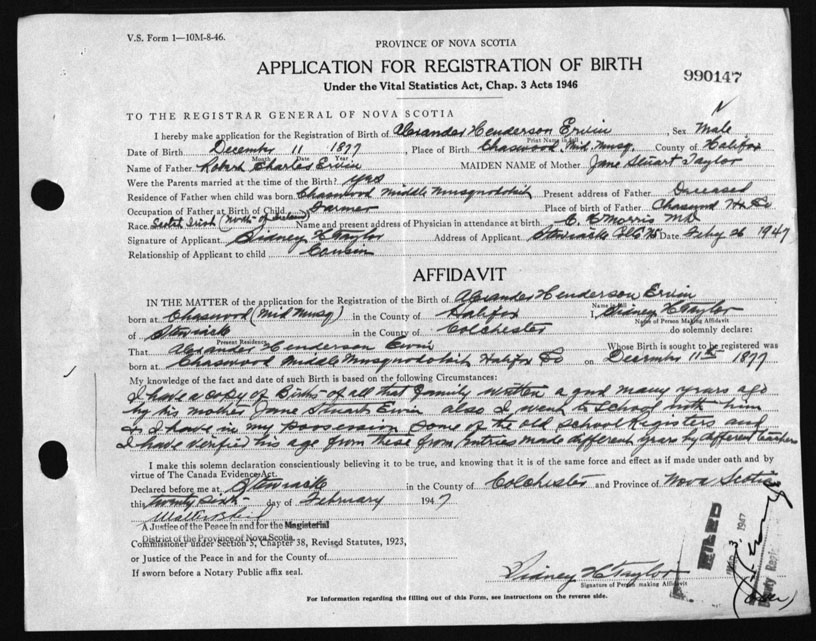 V.S. Form 1—10M-8-46.
PROVINCE OF NOVA SCOTIA
APPLICATION FOR REGISTRATION OF BIRTH
990147
Under the Vital Statistics Act, Chap. 3 Acts 1946
TO THE REGISTRAR GENERAL OF NOVA SCOTIA
I hereby make application for the Registration of Birth of Alexander Henderson Ervin, Sex Male
Print Name in full
Date of Birth December 11 1877, Place of Birth Chaswood Mid. Musq. County of Halifax
Month Date Year
Name of Father Robert Charles Ervin MAIDEN NAME of Mother Jane Stuart Taylor
Were the Parents married at the time of the Birth? yes
Residence of Father when child was born Chaswood Middle Musquodoboit Present address of Father Deceased
Occupation of Father at Birth of Child Farmer Place of birth of Father Chaswood Hx Co
Race Scotch Irish (North of Ireland) Name and present address of Physician in attendance at birth C. E Morris MD
Signature of Applicant Sidney H Taylor Address of Applicant Stewiacke Col Co NS Date Feby 26 1947
Relationship of Applicant to child Cousin
AFFIDAVIT
IN THE MATTER of the application for the Registration of the Birth of Alexander Henderson Ervin
Name in full
born at Chaswood (Mid Musq) in the County of Halifax I, Sidney H Taylor
Name of Person Making Affidavit
of Stewiacke in the County of Colchester do solemnly declare:
Present Residence
That Alexander Henderson Ervin Whose Birth is sought to be registered was
born at Chaswood Middle Musquodoboit Halifax Co on December 11th 1877
My knowledge of the fact and date of such Birth is based on the following Circumstances:
I have a copy of Births of all that family written a good many years ago
by his mother Jane Stuart Ervin also I went to School with him
I have in my possession some of the old School Registers and
I have verified his age from these from entries made different years by different teachers
I make this solemn declaration conscientiously believing it to be true, and knowing that it is of the same force and effect as if made under oath and by
virtue of The Canada Evidence Act.
Declared before me at Stewiacke in the County of Colchester and Province of Nova Scotia
this twenty sixth day of February 1947
A Justice of the Peace in and for the Magisterial
District of the Province of Nova Scotia.
Commissioner under Section 5, Chapter 38, Revised Statutes, 1923,
or Justice of the Peace in and for the County of
If sworn before a Notary Public affix seal.
Sidney H Taylor
Signature of Person making Affidavit
FILED
3 1947
Deputy
(over)
For Information regarding the filling out of this Form, see instructions on the reverse side.